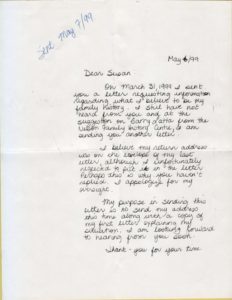 Sent May 7/99
May 6/99
Dear Susan
On March 31, 1999 I sent
you a letter requesting information
regarding what I believe to be my
family history. I still have not
heard from you and at the
suggestion of Barry
family history centre, I am
sending you another letter.
I believe my return address
was on the envelope of my last
letter, although I unfortunately
neglected to put it on the letter.
Perhaps this is why you haven't
replied. I apologize for my
oversight.
My purpose in sending this
letter is to send my address
this time along with a copy of
my first letter explaining my
situation. I am looking forward
to hearing from you soon.
Thank-you for your time